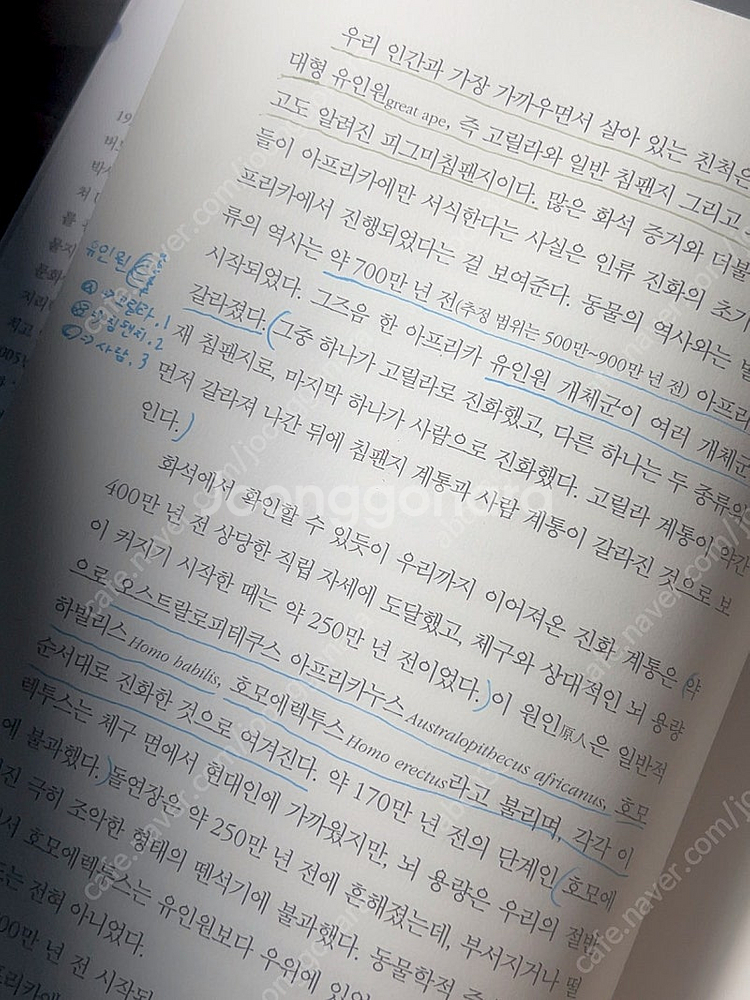 우리 인간과 가장 가까우면서 살아 있는 친척은
대형 유인원great ape, 즉 고릴라와 일반 침팬지 그리고
고도 알려진 피그미침팬지이다. 많은 화석 증거와 더불
들이 아프리카에만 서식한다는 사실은 인류 진화의 초기
프리카에서 진행되었다는 걸 보여준다. 동물의 역사와는
류의 역사는 약 700만 년 전(추정 범위는 500만~900만 년 전) 아프리
시작되었다. 그즈음 한 아프리카 유인원 개체군이 여러 개체군
갈라졌다. 그중 하나가 고릴라로 진화했고, 다른 하나는 두 종류의
재 침팬지로, 마지막 하나가 사람으로 진화했다. 고릴라 계통이 약간
먼저 갈라져 나간 뒤에 침팬지 계통과 사람 계통이 갈라진 것으로 보
인다.
화석에서 확인할 수 있듯이 우리까지 이어져온 진화 계통은 약
400만 년 전 상당한 직립 자세에 도달했고, 체구와 상대적인 뇌 용량
이 커지기 시작한 때는 약 250만 년 전이었다. 이 원인原人은 일반적
으로 오스트랄로피테쿠스 아프리카누스Australopithecus africanus, 호모
하빌리스Homo habilis, 호모에렉투스Homo erectus라고 불리며, 각각 이
순서대로 진화한 것으로 여겨진다. 약 170만 년 전의 단계인 호모에
렉투스는 체구 면에서 현대인에 가까웠지만, 뇌 용량은 우리의 절반
에 불과했다. 돌연장은 약 250만 년 전에 흔해졌는데, 부서지거나 떨
진 극히 조악한 형태의 뗀석기에 불과했다. 동물학적
서 호모에렉투스는 유인원보다 우위에
는 전혀 아니었다.
00만 년 전 시작된
유인원
고릴라. 1
침팬지. 2
사람. 3
Joonggonara
cafe.naver.com/joonggonara